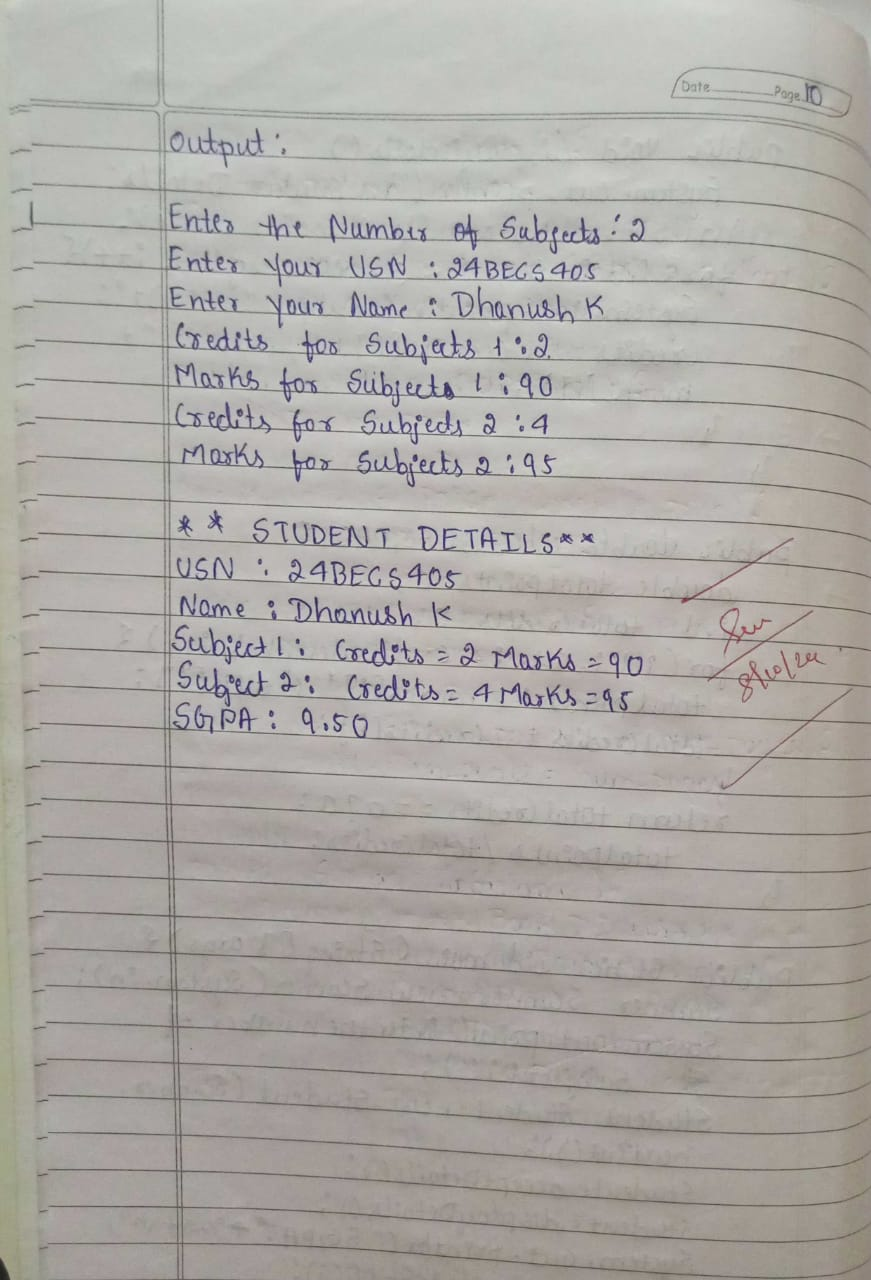 Date Page 10
Output:
Enter the Number of Subjects: 2
Enter Your USN : 24BECS405
Enter Your Name : Dhanush K
Credits for Subjects 1 : 2
Marks for Subjects 1 : 90
Credits for Subjects 2 : 4
Marks for Subjects 2 : 95
* * STUDENT DETAILS **
USN : 24BECS405
Name : Dhanush K
Subject 1 : Credits = 2 Marks = 90
Subject 2 : Credits = 4 Marks = 95
8/10/24
SGPA : 9.50